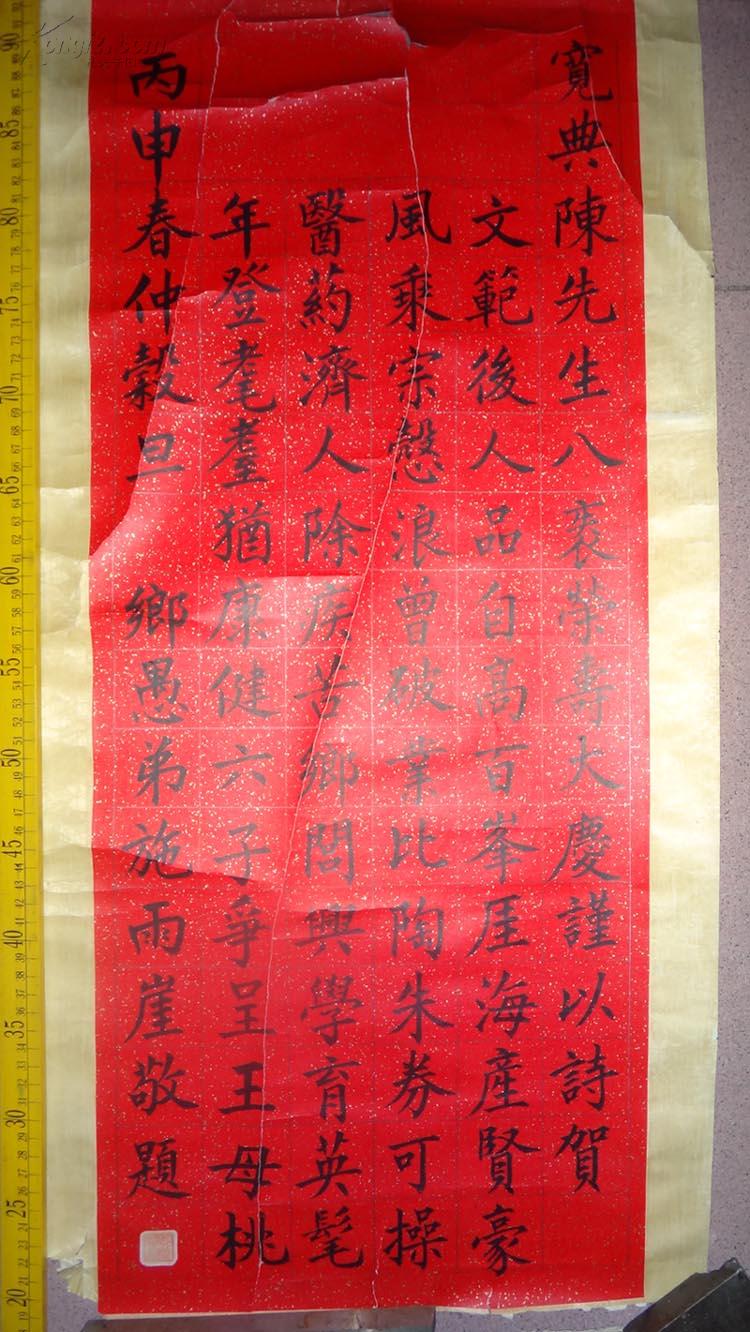 寬典陳先生八袠榮壽大慶謹以詩賀
文範後人品自高百峯厓海產賢豪
風乘宗愨浪曾破業比陶朱券可操
醫葯濟人除疾苦鄉閭興學育英髦
年登耄耋猶康健六子爭呈王母桃
丙申春仲穀旦 鄉愚弟施雨崖敬題
90
85
80
75
70
65
60
55
50
45
40
35
30
25
20